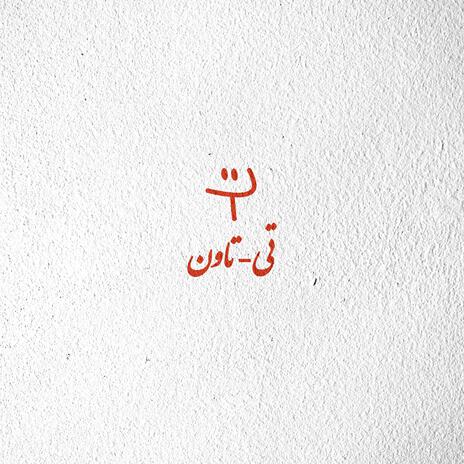 ت
تی-تاون